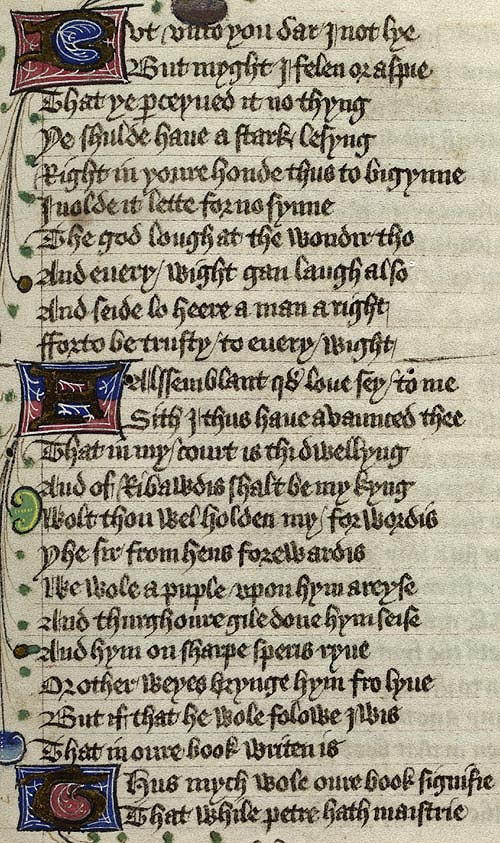 But vnto you dar I not lye
But myght I felen or aspie
That ye ꝑceyued it no thyng
Ye shulde haue a stark lesyng
Right in youre honde thus to bigynne
I nolde it lette for no synne
The god lough at the wondir tho
And euery wight gan laugh also
And seide lo heere a man a right
fforto be trusty to euery wight
Falssemblant qd loue sey to me
Sith I thus haue avaunced thee
That in my court is thi dwellyng
And of Ribawdis shalt be my kyng
Wolt thou wel holden my forwordis
Yhe sir from hens forewardis
We wole a puple vpon hym areyse
And thurgh oure gile done hym seise
And hym on sharpe speris ryue
Or other weyes brynge hym fro lyue
But if that he wole folowe Iwis
That in oure book writen is
Thus mych wole oure book signifie
That while petre hath maistrie